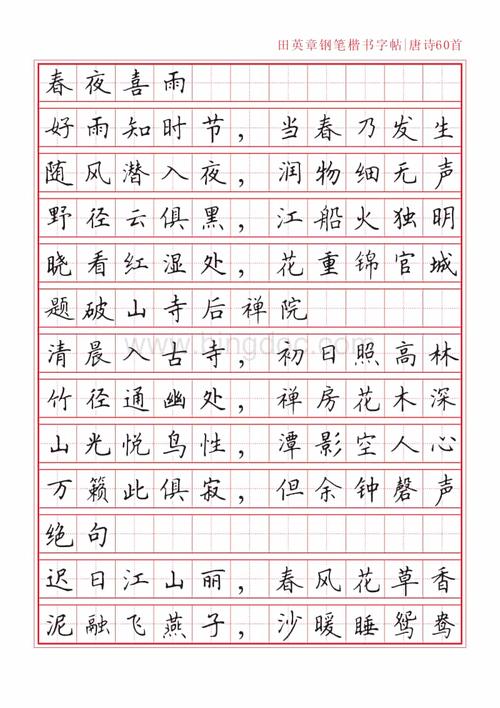 田英章钢笔楷书字帖|唐诗60首
春夜喜雨
好雨知时节，当春乃发生
随风潜入夜，润物细无声
野径云俱黑，江船火独明
晓看红湿处，花重锦官城
题破山寺后禅院
清晨入古寺，初日照高林
竹径通幽处，禅房花木深
山光悦鸟性，潭影空人心
万籁此俱寂，但余钟磬声
绝句
迟日江山丽，春风花草香
泥融飞燕子，沙暖睡鸳鸯